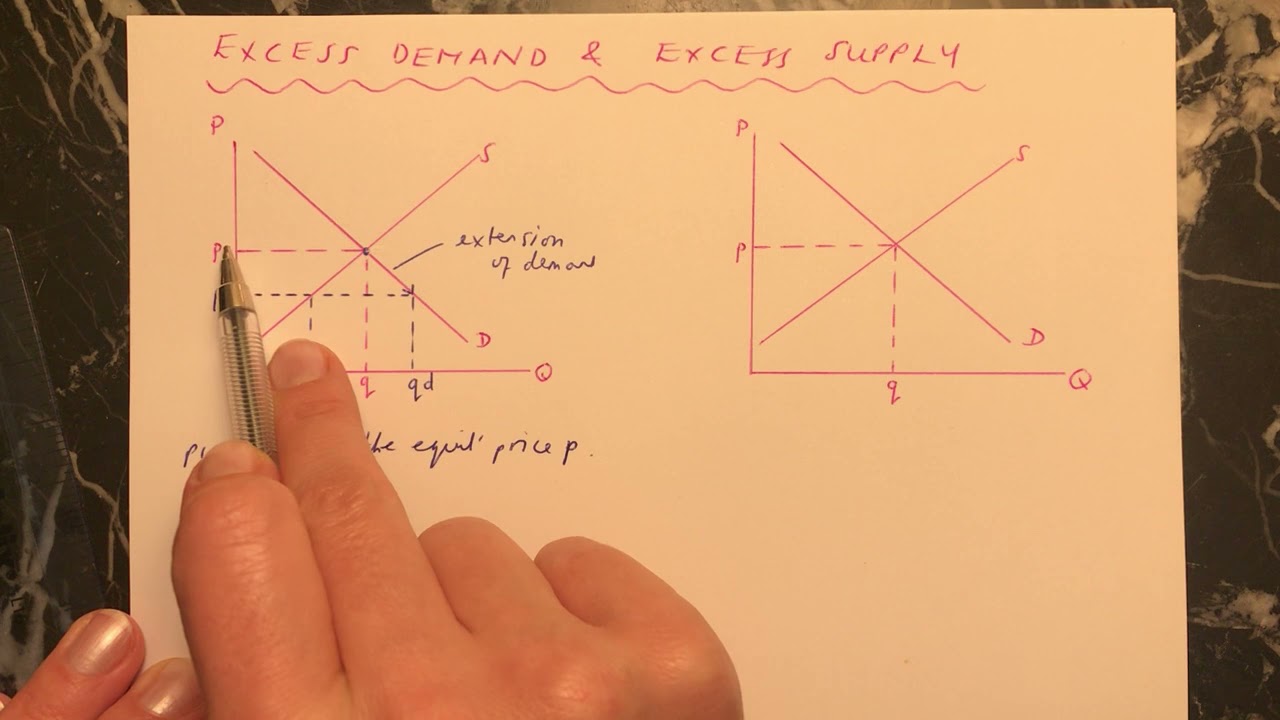 EXCESS DEMAND & EXCESS SUPPLY
P
S
P
extension
of demand
D
q
qd
Q
the equil' price p.
P
S
P
D
q
Q